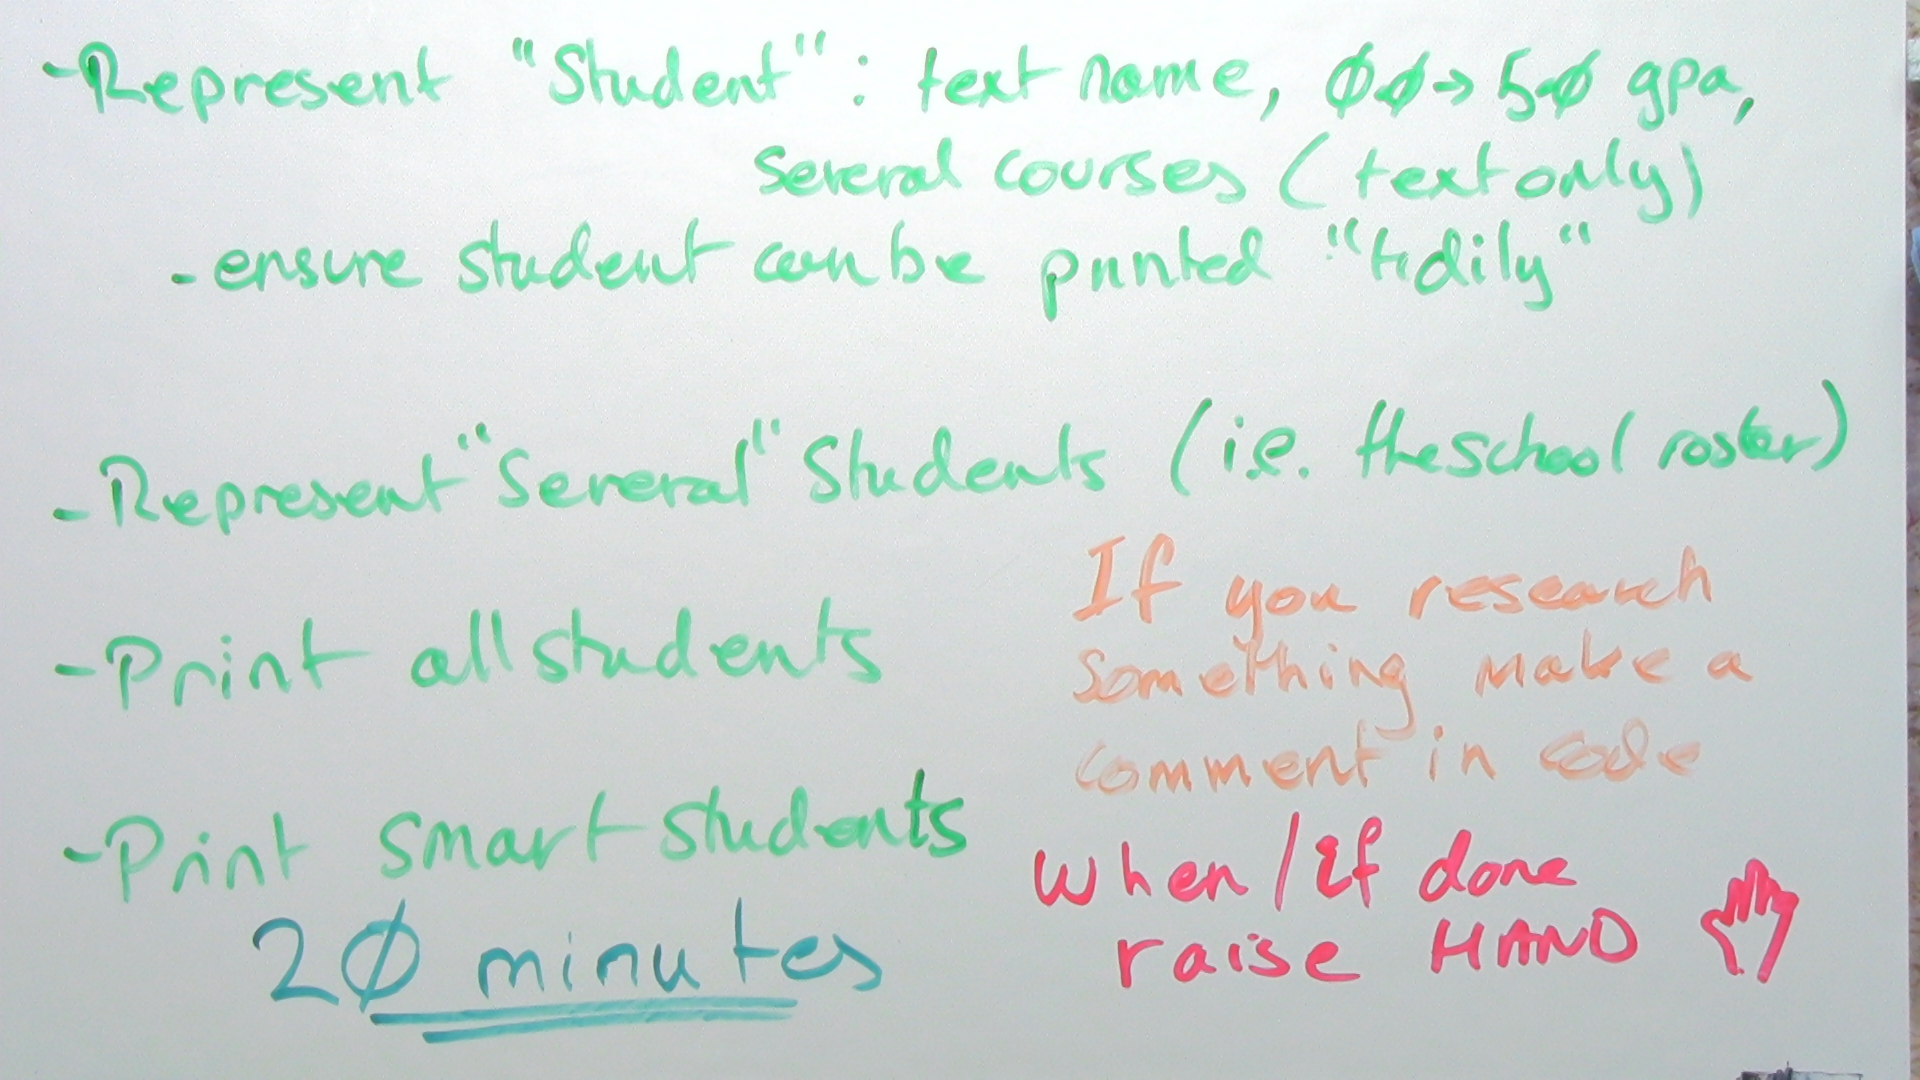 -Represent "Student": text name, 0.0→5.0 gpa,
several courses (text only)
- ensure student can be printed "tidily"
- Represent "Several" Students (i.e. the school roster)
- Print all students
- Print smart students
20 minutes
If you research
something make a
comment in code
When/If done
raise HAND